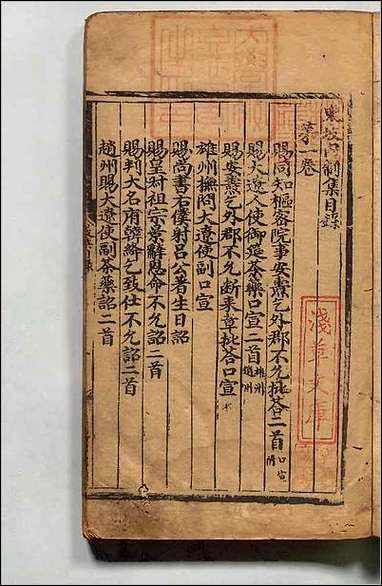 東坡內制集目錄
第一卷
賜同知樞密院事安燾乞外郡不允批荅二首口宣附
賜大遼人使御筵茶藥口宣二首雄州趙州
賜安燾乞外郡不允斷來章批荅口宣
雄州撫問大遼使副口宣
賜尚書右僕射呂公著生日詔
賜皇叔祖宗景辭恩命不允詔二首
賜判大名府韓絳乞致仕不允詔二首
趙州賜大遼使副茶藥詔二首
淺草文庫